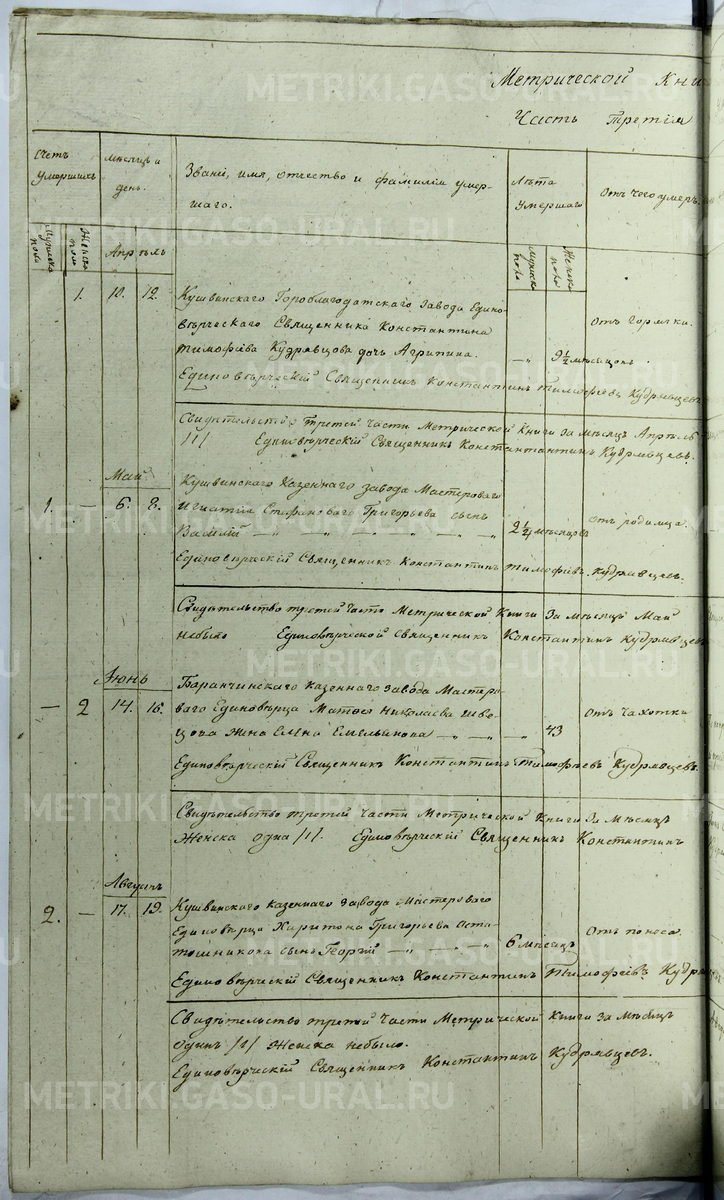 Метрической Кни
Часть третiя
Счетъ умершихъ
мѣсяцъ и день.
Званiе, имя, отчество и фамилiя умер-
шаго.
Лѣта умершаго
Отъ чего умеръ.
Мужеска пола
Женска пола
Апрѣль
мужска пола
Женска пола
1. 10. 12. Кушвинскаго Гороблагодатскаго Завода Едино-
вѣрческаго Священника Константина
Тимофѣева Кудрявцова дочь Агрипина. — 9½ мѣсяцовъ. отъ горячки.
Единовѣрческiй Священникъ Константинъ Тимофѣевъ Кудрявцевъ
Свидѣтельство Третей Части Метрической Книги за мѣсяцъ Апрѣль
/1/ Единовѣрческiй Священникъ Константинъ Кудрявцевъ.
Май
1. — 6. 8. Кушвинскаго Казеннаго завода Мастероваго
Игнатiя Стефановаго Григорьева сынъ
Василiй 2¼ мѣсяцовъ отъ родимца.
Единовѣрческiй Священникъ Константинъ Тимофѣевъ Кудрявцевъ.
Свидѣтельство третей Части Метрической Книги за Мѣсяцъ Май
небыло Единовѣрческой Священникъ Константинъ Кудрявцевъ
Iюнь
— 2 14. 16. Баранчинскаго Казеннаго завода Мастеро-
ваго Единовѣрца Матвея Николаева Шве-
цова жена Елена Емельянова — 43 отъ чахотки
Единовѣрческiй Священникъ Константинъ Тимофѣевъ Кудрявцевъ.
Свидѣтельство третей Части Метрической Книги за Мѣсяцъ
Женска одна /1/. Единовѣрческiй Священникъ Константинъ
Августъ
2. — 17. 19. Кушвинскаго казеннаго завода Мастероваго
Единовѣрца Харитона Григорьева Оста-
сынъ Георгiй 6 мѣсяцъ Отъ поноса
Единовѣрческiй Священникъ Константинъ Тимофѣевъ Кудря
Свидѣтельство третей Части Метрической Книги за Мѣсяцъ
одинъ /1/ Женска небыло.
Единовѣрческiй Священникъ Константинъ Кудрявцевъ.
METRIKI.GASO-URAL.RU